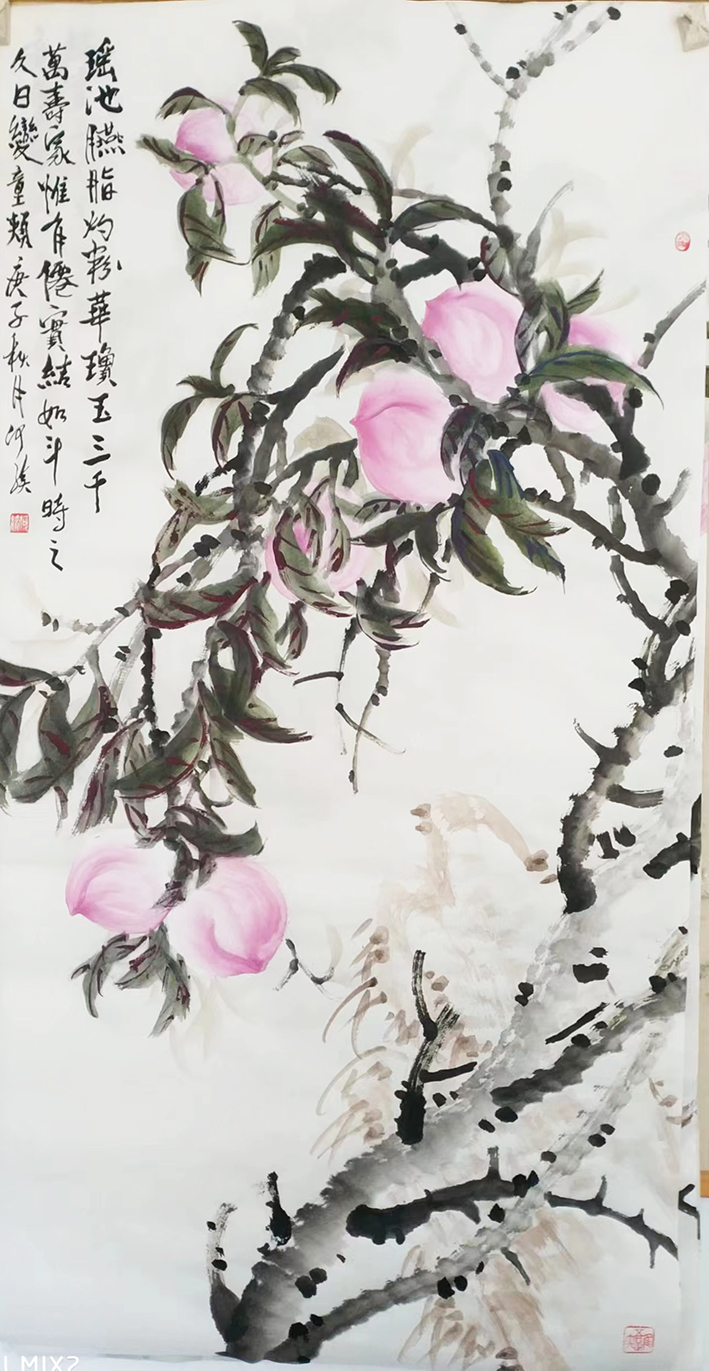 瑶池臙脂灼粉華瓊玉三千
萬壽家惟有僊實結如斗時之
久日變童顏庚子秋月
MIX2